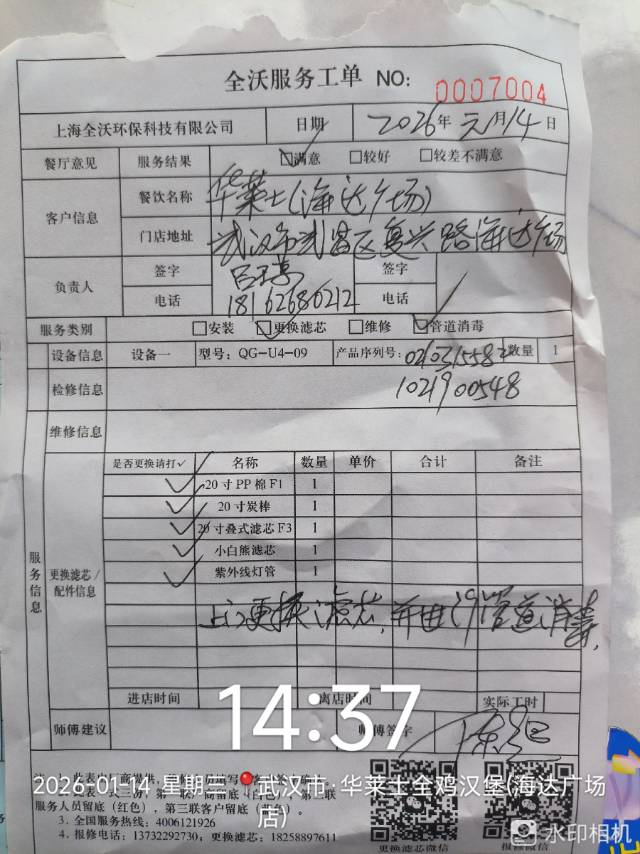 全沃服务工单 NO: 0007004
上海全沃环保科技有限公司 日期 2026年元月14日
餐厅意见 服务结果 ☑满意 □较好 □较差不满意
客户信息 餐饮名称 华莱士(海达广场)
门店地址 武汉市武昌区复兴路海达广场
负责人 签字 签字
电话 18162686212 电话
服务类别 □安装 ☑更换滤芯 □维修 ☑管道消毒
设备信息 设备一 型号: QG-U4-09 产品序列号: 数量 1
1021900548
检修信息
维修信息
服务信息 更换滤芯/配件信息
是否更换请打✓ 名称 数量 单价 合计 备注
✓ 20寸PP棉F1 1
✓ 20寸炭棒 1
✓ 20寸叠式滤芯F3 1
✓ 小白熊滤芯 1
✓ 紫外线灯管 1
上门更换滤芯,并进行管道消毒.
进店时间 离店时间 实际工时
师傅建议 师傅签字
14:37
2026-01-14 星期三 武汉市·华莱士全鸡汉堡(海达广场店)
服务人员留底(红色),第三联客户留底
3. 全国服务热线: 4006121926
4. 报修电话: 13732292730; 更换滤芯: 18258897611
更换滤芯微信 报修微信
水印相机